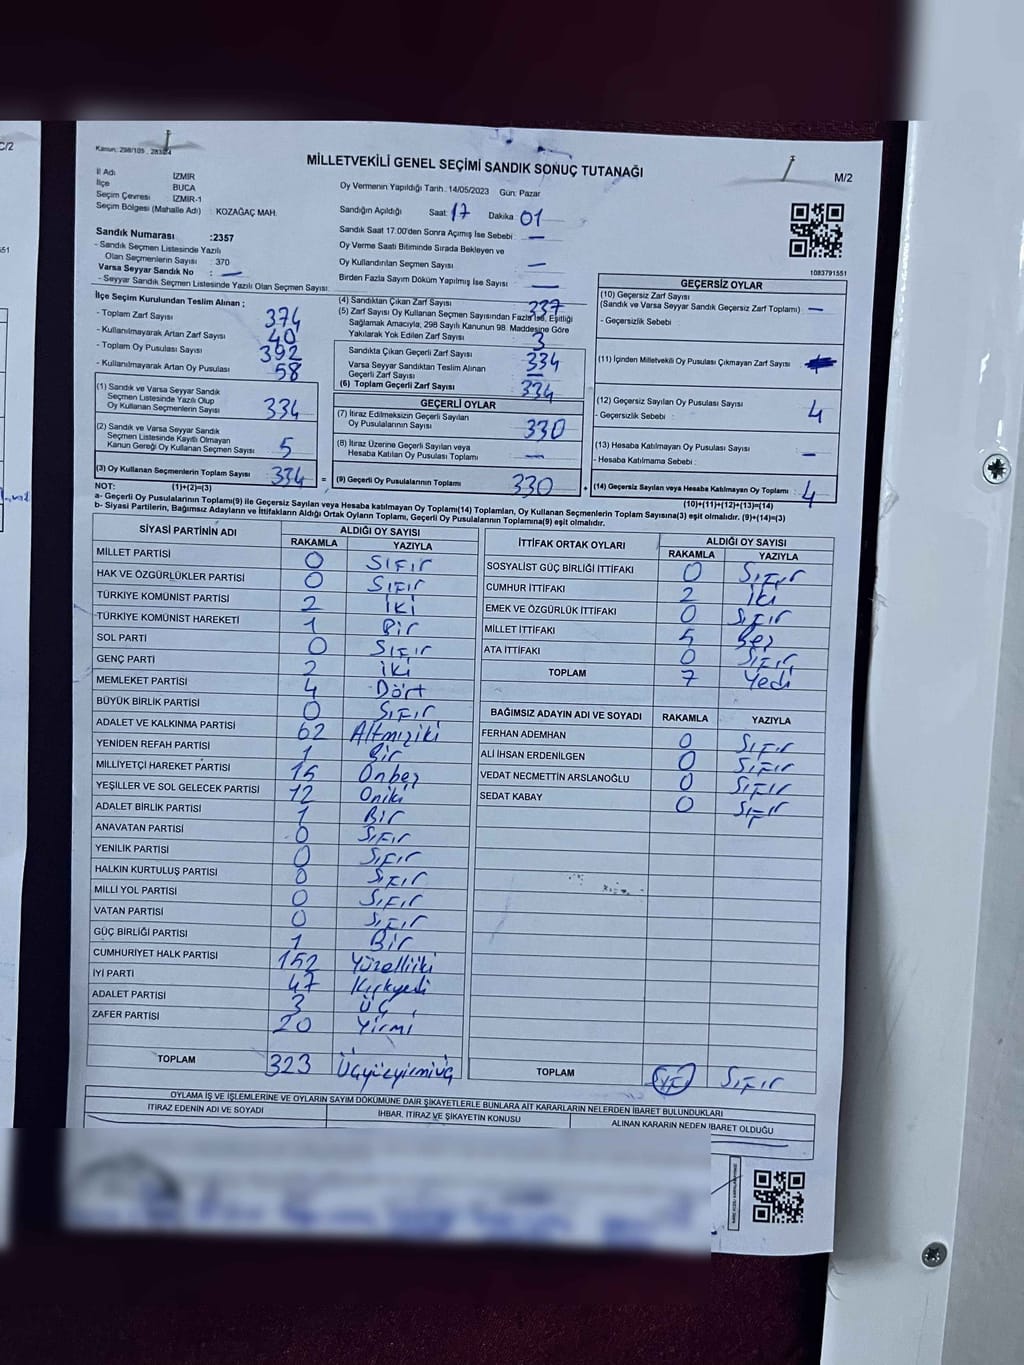 C/2
Kanun: 298/105 , 2839/4
MİLLETVEKİLİ GENEL SEÇİMİ SANDIK SONUÇ TUTANAĞI
M/2
İl Adı İZMİR
İlçe BUCA
Seçim Çevresi İZMİR-1
Seçim Bölgesi (Mahalle Adı) : KOZAĞAÇ MAH.
Sandık Numarası :2357
- Sandık Seçmen Listesinde Yazılı
Olan Seçmenlerin Sayısı : 370
Varsa Seyyar Sandık No : —
- Seyyar Sandık Seçmen Listesinde Yazılı Olan Seçmen Sayısı:
Oy Vermenin Yapıldığı Tarih : 14/05/2023 Gün: Pazar
Sandığın Açıldığı Saat: 17 Dakika: 01
Sandık Saat 17.00'den Sonra Açılmış İse Sebebi : —
Oy Verme Saati Bitiminde Sırada Bekleyen ve
Oy Kullandırılan Seçmen Sayısı : —
Birden Fazla Sayım Döküm Yapılmış İse Sayısı : —
1083791551
İlçe Seçim Kurulundan Teslim Alınan ;
- Toplam Zarf Sayısı 374
- Kullanılmayarak Artan Zarf Sayısı 40
- Toplam Oy Pusulası Sayısı 392
- Kullanılmayarak Artan Oy Pusulası 58
(1) Sandık ve Varsa Seyyar Sandık
Seçmen Listesinde Yazılı Olup
Oy Kullanan Seçmenlerin Sayısı 334
(2) Sandık ve Varsa Seyyar Sandık
Seçmen Listesinde Kayıtlı Olmayan
Kanun Gereği Oy Kullanan Seçmen Sayısı 5
(3) Oy Kullanan Seçmenlerin Toplam Sayısı 334 =
(4) Sandıktan Çıkan Zarf Sayısı 337
(5) Zarf Sayısı Oy Kullanan Seçmen Sayısından Fazla İse, Eşitliği
Sağlamak Amacıyla, 298 Sayılı Kanunun 98. Maddesine Göre
Yakılarak Yok Edilen Zarf Sayısı : 3
Sandıkta Çıkan Geçerli Zarf Sayısı 334
Varsa Seyyar Sandıktan Teslim Alınan
Geçerli Zarf Sayısı —
(6) Toplam Geçerli Zarf Sayısı 334
GEÇERLİ OYLAR
(7) İtiraz Edilmeksizin Geçerli Sayılan
Oy Pusulalarının Sayısı : 330
(8) İtiraz Üzerine Geçerli Sayılan veya
Hesaba Katılan Oy Pusulası Toplamı : —
(9) Geçerli Oy Pusulalarının Toplamı 330 +
GEÇERSİZ OYLAR
(10) Geçersiz Zarf Sayısı
(Sandık ve Varsa Seyyar Sandık Geçersiz Zarf Toplamı) : —
- Geçersizlik Sebebi :
(11) İçinden Milletvekili Oy Pusulası Çıkmayan Zarf Sayısı :
(12) Geçersiz Sayılan Oy Pusulası Sayısı : 4
- Geçersizlik Sebebi :
(13) Hesaba Katılmayan Oy Pusulası Sayısı : —
- Hesaba Katılmama Sebebi :
(14) Geçersiz Sayılan veya Hesaba Katılmayan Oy Toplamı : 4
NOT: (1)+(2)=(3)
(10)+(11)+(12)+(13)=(14)
a- Geçerli Oy Pusulalarının Toplamı(9) ile Geçersiz Sayılan veya Hesaba katılmayan Oy Toplamı(14) Toplamları, Oy Kullanan Seçmenlerin Toplam Sayısına(3) eşit olmalıdır. (9)+(14)=(3)
b- Siyasi Partilerin, Bağımsız Adayların ve İttifakların Aldığı Ortak Oyların Toplamı, Geçerli Oy Pusulalarının Toplamına(9) eşit olmalıdır.
SİYASİ PARTİNİN ADI ALDIĞI OY SAYISI
RAKAMLA YAZIYLA
MİLLET PARTİSİ 0 Sıfır
HAK VE ÖZGÜRLÜKLER PARTİSİ 0 Sıfır
TÜRKİYE KOMÜNİST PARTİSİ 2 İki
TÜRKİYE KOMÜNİST HAREKETİ 1 Bir
SOL PARTİ 0 Sıfır
GENÇ PARTİ 2 İki
MEMLEKET PARTİSİ 4 Dört
BÜYÜK BİRLİK PARTİSİ 0 Sıfır
ADALET VE KALKINMA PARTİSİ 62 Altmışiki
YENİDEN REFAH PARTİSİ 1 Bir
MİLLİYETÇİ HAREKET PARTİSİ 15 Onbeş
YEŞİLLER VE SOL GELECEK PARTİSİ 12 Oniki
ADALET BİRLİK PARTİSİ 1 Bir
ANAVATAN PARTİSİ 0 Sıfır
YENİLİK PARTİSİ 0 Sıfır
HALKIN KURTULUŞ PARTİSİ 0 Sıfır
MİLLİ YOL PARTİSİ 0 Sıfır
VATAN PARTİSİ 0 Sıfır
GÜÇ BİRLİĞİ PARTİSİ 1 Bir
CUMHURİYET HALK PARTİSİ 152 Yüzelliiki
İYİ PARTİ 47 Kırkyedi
ADALET PARTİSİ 3 Üç
ZAFER PARTİSİ 20 Yirmi
TOPLAM 323 Üçyüzyirmiüç
İTTİFAK ORTAK OYLARI ALDIĞI OY SAYISI
RAKAMLA YAZIYLA
SOSYALİST GÜÇ BİRLİĞİ İTTİFAKI 0 Sıfır
CUMHUR İTTİFAKI 2 İki
EMEK VE ÖZGÜRLÜK İTTİFAKI 0 Sıfır
MİLLET İTTİFAKI 5 Beş
ATA İTTİFAKI 0 Sıfır
TOPLAM 7 Yedi
BAĞIMSIZ ADAYIN ADI VE SOYADI RAKAMLA YAZIYLA
FERHAN ADEMHAN 0 Sıfır
ALİ İHSAN ERDENİLGEN 0 Sıfır
VEDAT NECMETTİN ARSLANOĞLU 0 Sıfır
SEDAT KABAY 0 Sıfır
TOPLAM Sıfır
OYLAMA İŞ VE İŞLEMLERİNE VE OYLARIN SAYIM DÖKÜMÜNE DAİR ŞİKAYETLERLE BUNLARA AİT KARARLARIN NELERDEN İBARET BULUNDUKLARI
İTİRAZ EDENİN ADI VE SOYADI İHBAR, İTİRAZ VE ŞİKAYETİN KONUSU ALINAN KARARIN NEDEN İBARET OLDUĞU